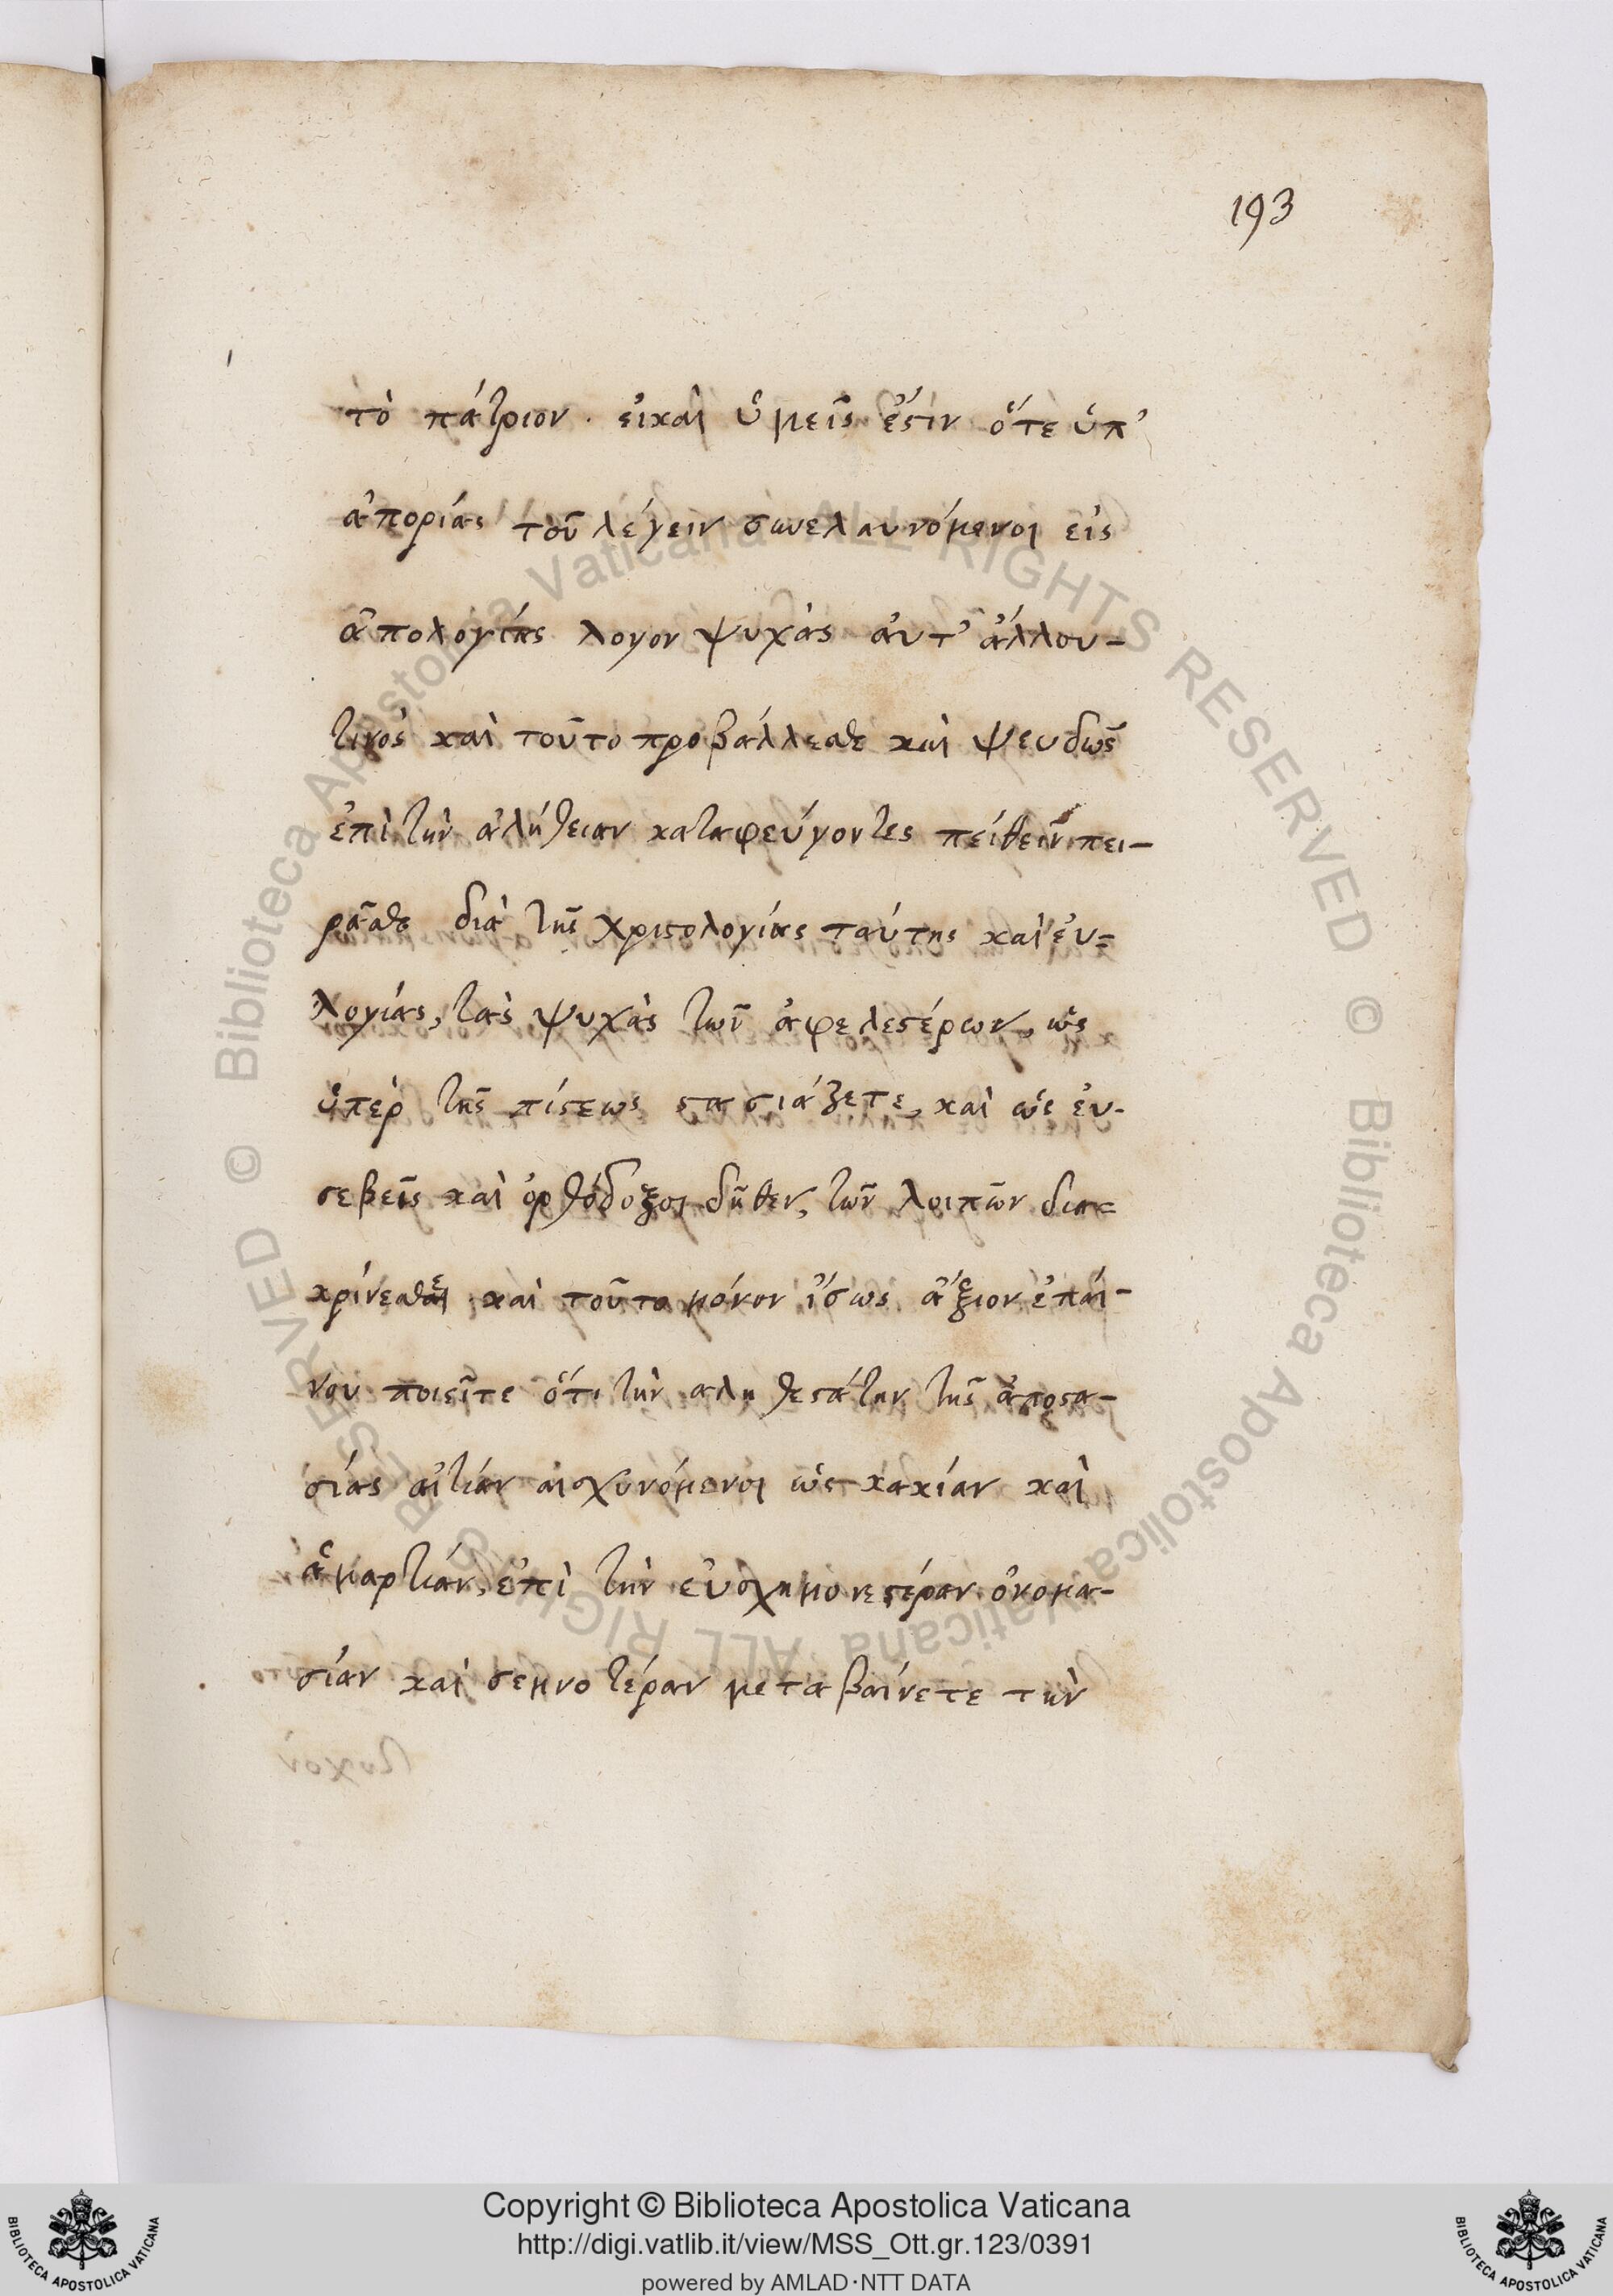 193
τὸ πάτριον · εἰ καὶ ὑμεῖς ἔστιν ὅτε ὑπ'
ἀπορίας τοῦ λέγειν συνελαυνόμενοι εἰς
ἀπολογίας λογον ψυχὰς ἀντ' ἄλλου-
τινὸς καὶ τοῦτο προβάλλεσθε καὶ ψευδῶς
ἐπὶ τὴν ἀλήθειαν καταφεύγοντες πείθειν πει-
ρᾶσθε διὰ τῆς χρηστολογίας ταύτης καὶ ἐυ=
λογίας, τὰς ψυχὰς τῶν ἀφελεστέρων, ὡς
ὑπὲρ τῆς πίστεως στασιάζετε, καὶ ὡς ἐυ-
σεβεῖς καὶ ὀρθόδοξοι δῆθεν, τῶν λοιπῶν δια=
κρίνεσθε καὶ τοῦτο μόνον ἴσως ἄξιον ἐπαί-
νου ποιεῖτε ὅτι τὴν αληθεστάτην τῆς ἀποστα-
σίας αἰτίαν αισχυνόμενοι ὡς κακίαν καὶ
ἁμαρτίαν, ἐπὶ τὴν ἐυσχημονεστέραν ὀνομα-
σίαν καὶ σεμνοτέραν μεταβαίνετε τὴν
© Biblioteca Apostolica Vaticana ALL RIGHTS RESERVED © Biblioteca Apostolica Vaticana ALL RIGHTS RESERVED
Copyright © Biblioteca Apostolica Vaticana
http://digi.vatlib.it/view/MSS_Ott.gr.123/0391
powered by AMLAD·NTT DATA
BIBLIOTECA APOSTOLICA VATICANA
BIBLIOTECA APOSTOLICA VATICANA